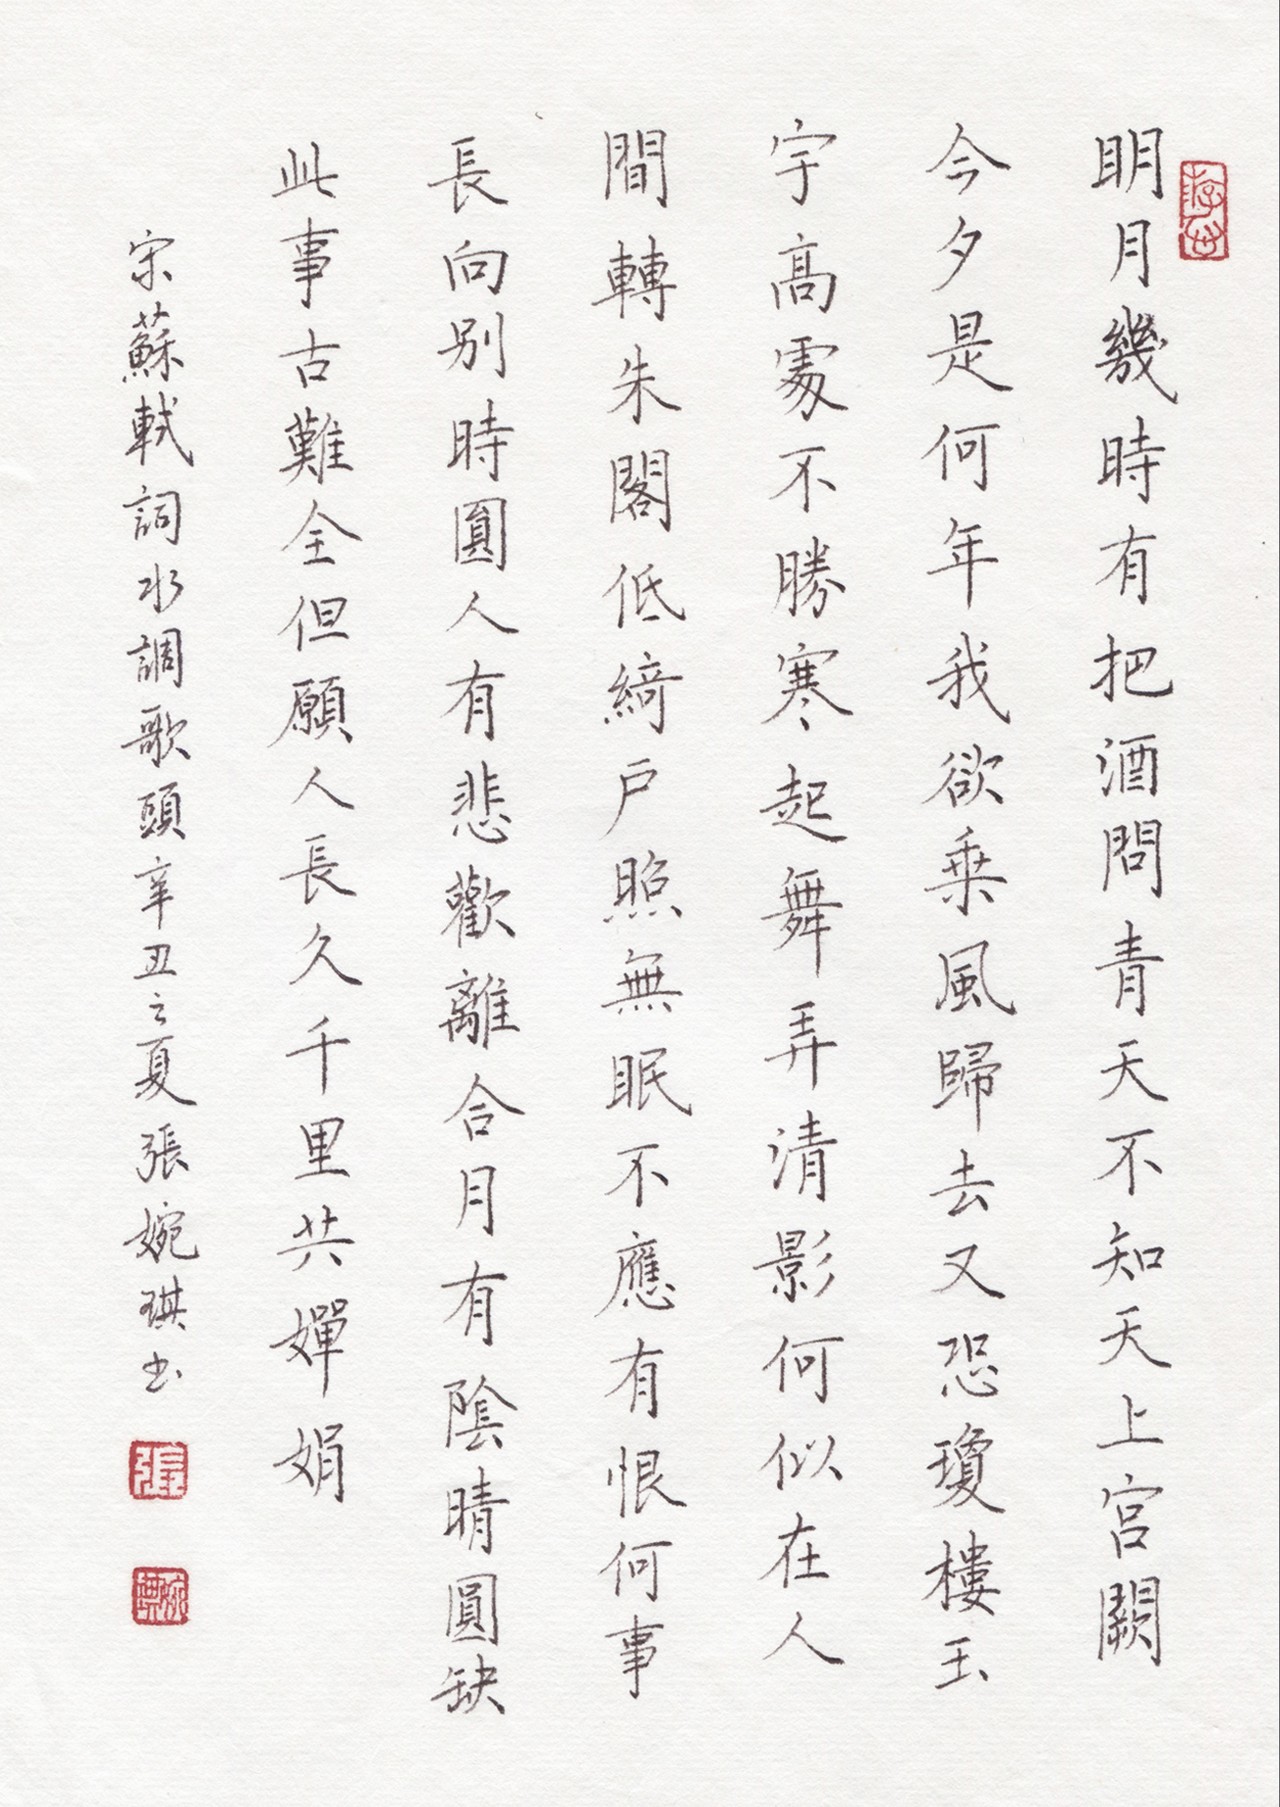 明月幾時有把酒問青天不知天上宮闕
今夕是何年我欲乗風歸去又恐瓊樓玉
宇高處不勝寒起舞弄清影何似在人
間轉朱閣低綺戶照無眠不應有恨何事
長向别時圓人有悲歡離合月有陰晴圓缺
此事古難全但願人長久千里共嬋娟
宋蘇軾詞水調歌頭辛丑之夏張婉琪书
張
婉琪